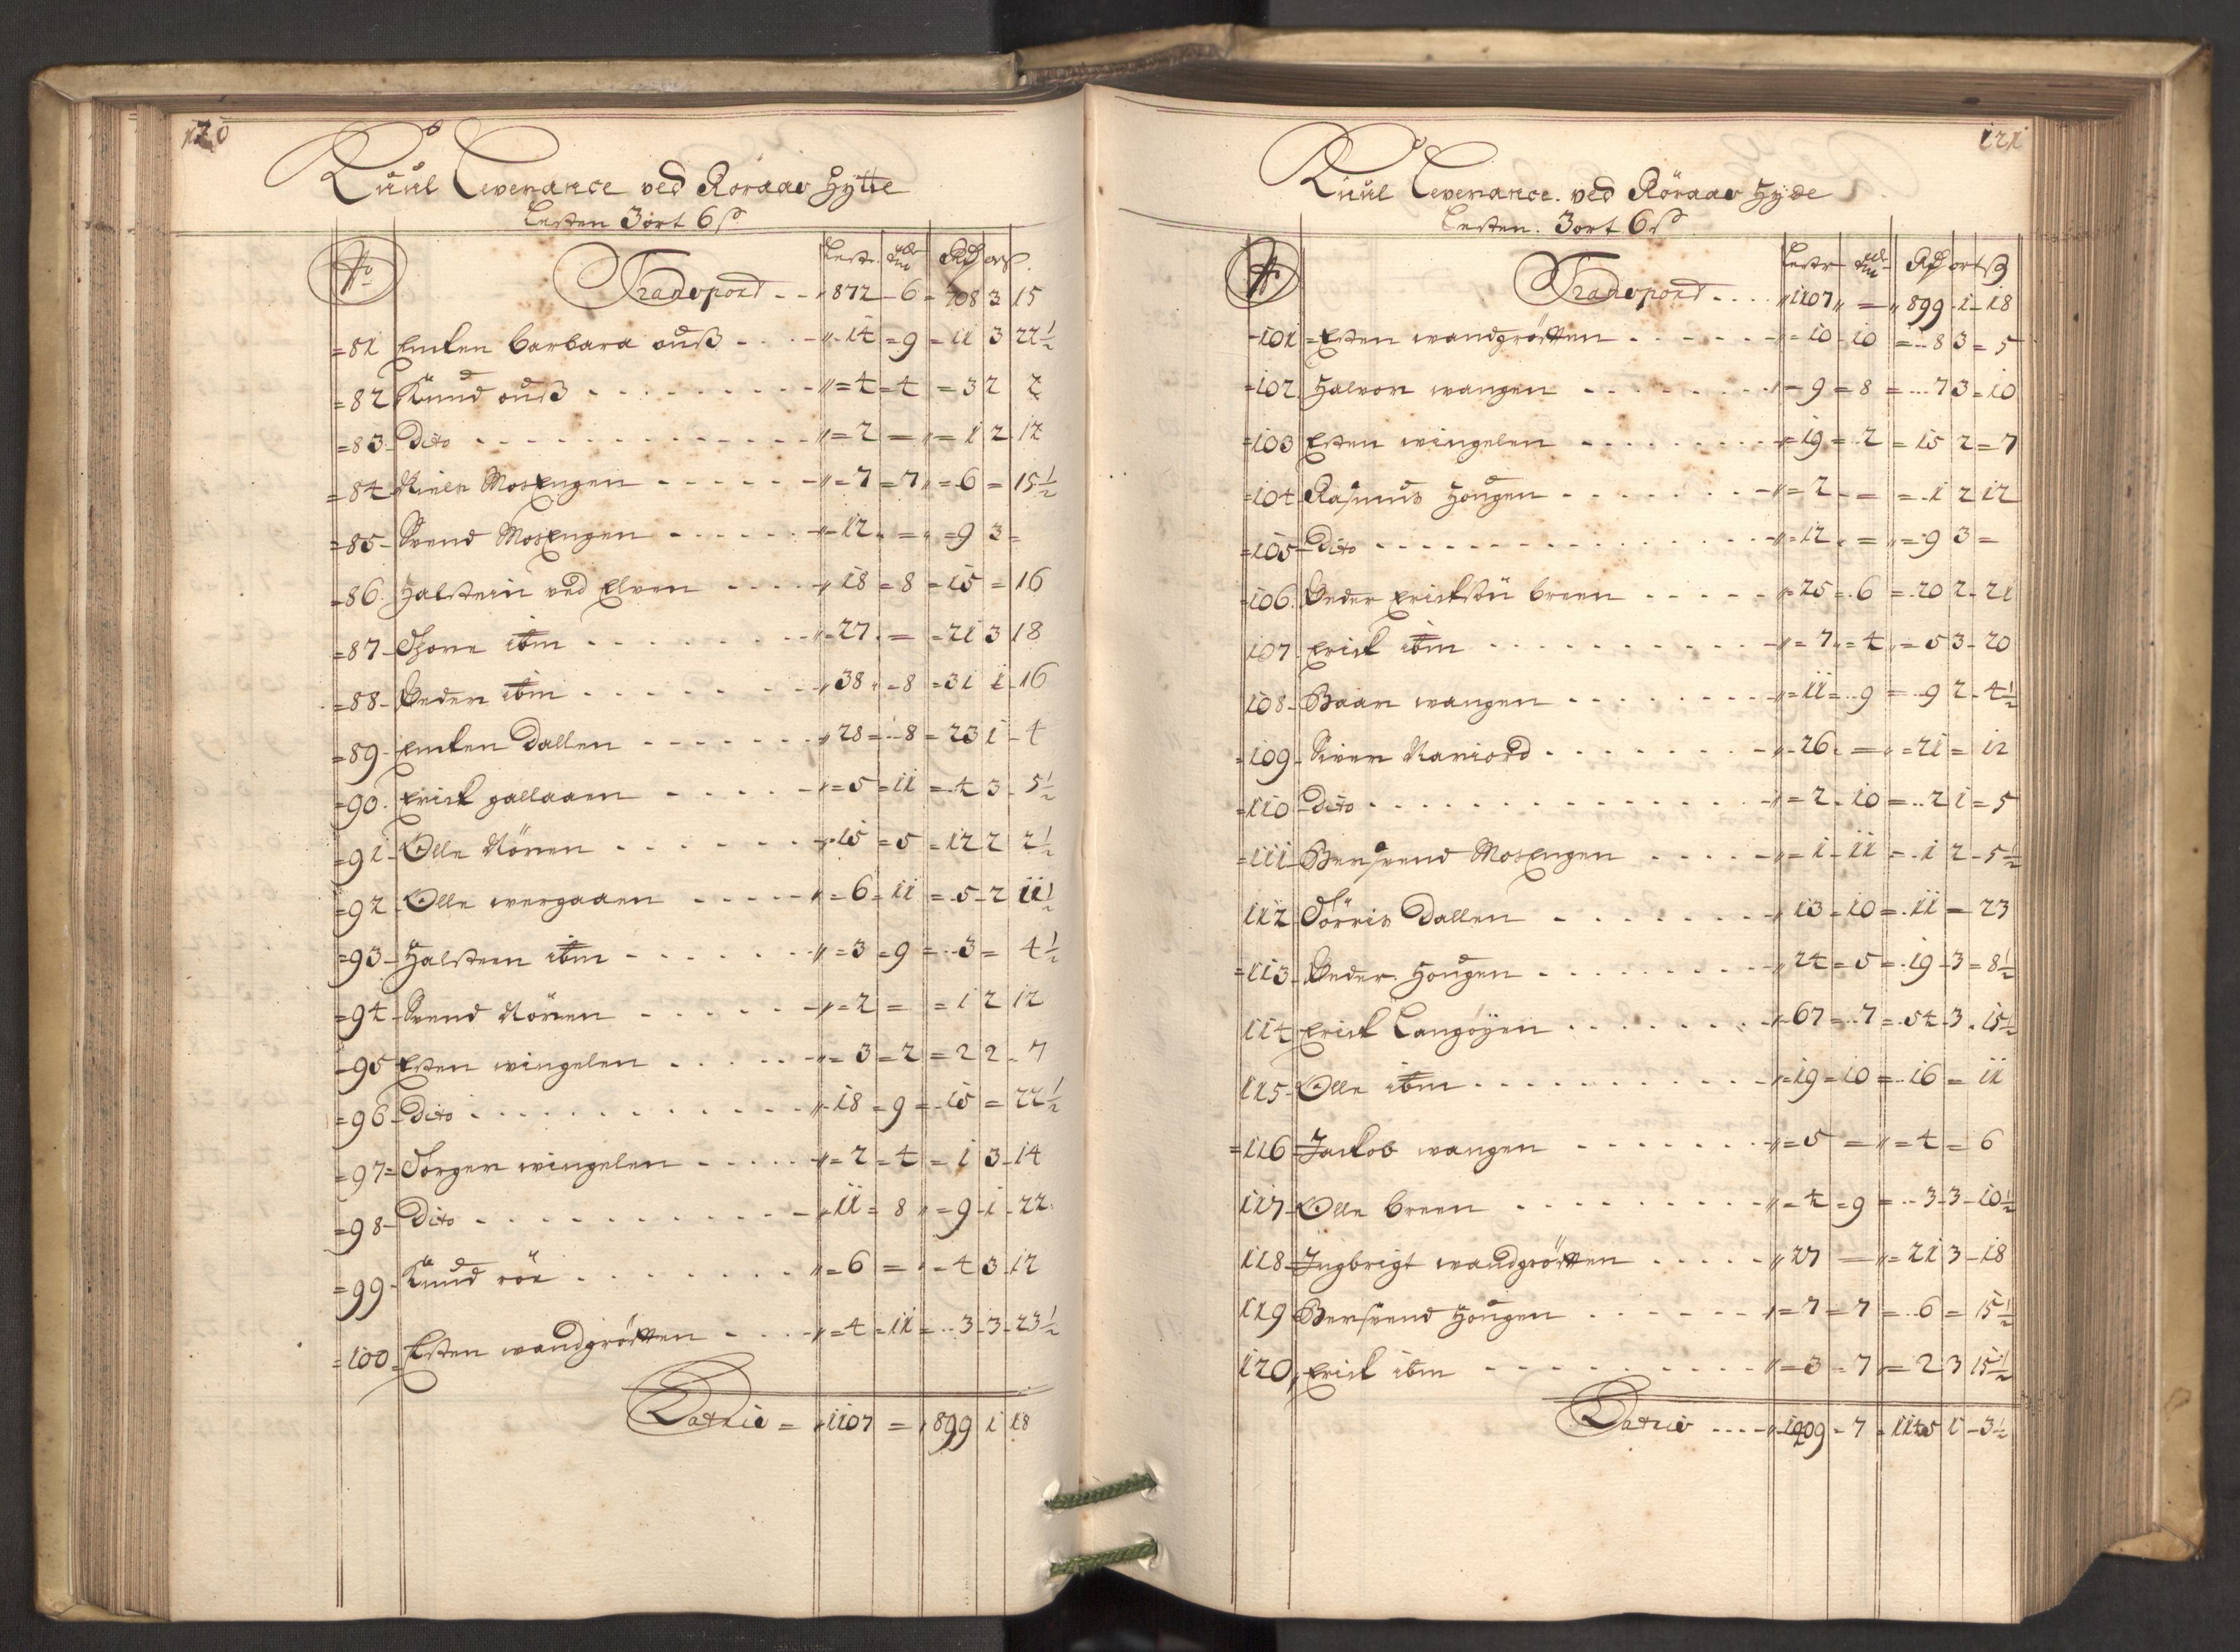 120
Kuul Leverance ved Röraas Hytte
Lesten 3 ort 6 ß
No Lester Rdr ort ß
Transport - - 872 - 6 = 708 3 15
=81 Encken barbara auß - - - 14 = 9 = 11 3 22½
=82 Knud auß - - - = 4 = 4 = 3 2 2
=83 Dito - - - = 2 = = 1 2 12
=84 Niels Mosengen - - - = 7 = 7 = 6 = 15½
=85 Svend Mosengen - - - 12 = = 9 3 =
=86 Halsten ved Elven - - - 18 = 8 = 15 = 16
=87 Thore ibm - - - 27 = = 21 3 18
=88 Peder ibm - - - 38 = 8 = 31 1 16
=89 Encken Dallen - - - 28 = 8 = 23 1 - 4
=90 Erick gallaaen - - - = 5 = 11 = 4 3 5½
=91 Olle Nören - - - 15 = 5 = 12 2 2½
=92 Olle wergaaen - - - = 6 = 11 = 5 - 2 11½
=93 Halsten ibm - - - = 3 = 9 = 3 = 4½
=94 Svend Nören - - - = 2 = = 1 2 12
=95 Esten wingelen - - - = 3 = 2 = 2 2 - 7
=96 Dito - - - 18 = 9 = 15 = 22½
=97 Torger wingelen - - - = 2 = 4 = 1 3 - 14
=98 Dito - - - 11 = 8 = 9 - 1 - 22
=99 Knud rör - - - = 6 = = 4 3 - 12
=100 Esten wandgrötten - - - = 4 = 11 = 3 - 3 - 23½
Latris = 1107 = 899 1 18
121
Kuul Leverance. ved Röraas Hyde
Lesten. 3 ort 6 ß
No Lester Rdr ort ß
Transport - - - 1107 = 899 - 1 - 18
=101 Esten wandgrötten - - - = 10 - 10 = 8 3 = 5
=102 Halvor wangen - - - = 9 = 8 = 7 3 - 10
=103 Esten wingelen - - - = 19 = 2 = 15 2 = 7
=104 Rasmus Hougen - - - = 2 = = 1 2 12
=105 Dito - - - = 12 = = 9 3 =
=106 Peder Erickßön breen - - - = 25 = 6 = 20 2 - 21
107 Erick ibm - - - = 7 = 4 = 5 3 - 20
108 Baar wangen - - - = 11 = 9 = 9 2 - 4½
=109 Siver Nariord - - - 26 = = 21 = 12
=110 Dito - - - = 2 - 10 = 2 1 = 5
=111 Bersvend Mosengen - - - = 1 - 11 = 1 2 - 5½
112 Törris Dallen - - - 13 - 10 = 11 = 23
=113 Peder Hougen - - - 24 = 5 = 19 - 3 = 8½
114 Erick Langöyen - - - 67 = 7 = 54 - 3 - 15½
115 Olle ibm - - - = 19 = 10 = 16 = 11
=116 Jackob wangen - - - = 5 = = 4 = 6
117 Olle breen - - - = 4 = 9 = 3 - 3 - 10½
118 Ingbrigt wandgrötten - - - 27 = = 21 3 - 18
119 Bersvend Hougen - - - = 7 = 7 = 6 = 15½
120 Erick ibm - - - = 3 = 7 = 2 3 15½
Latris - - - 1409 - 7 = 1145 1 - 3½